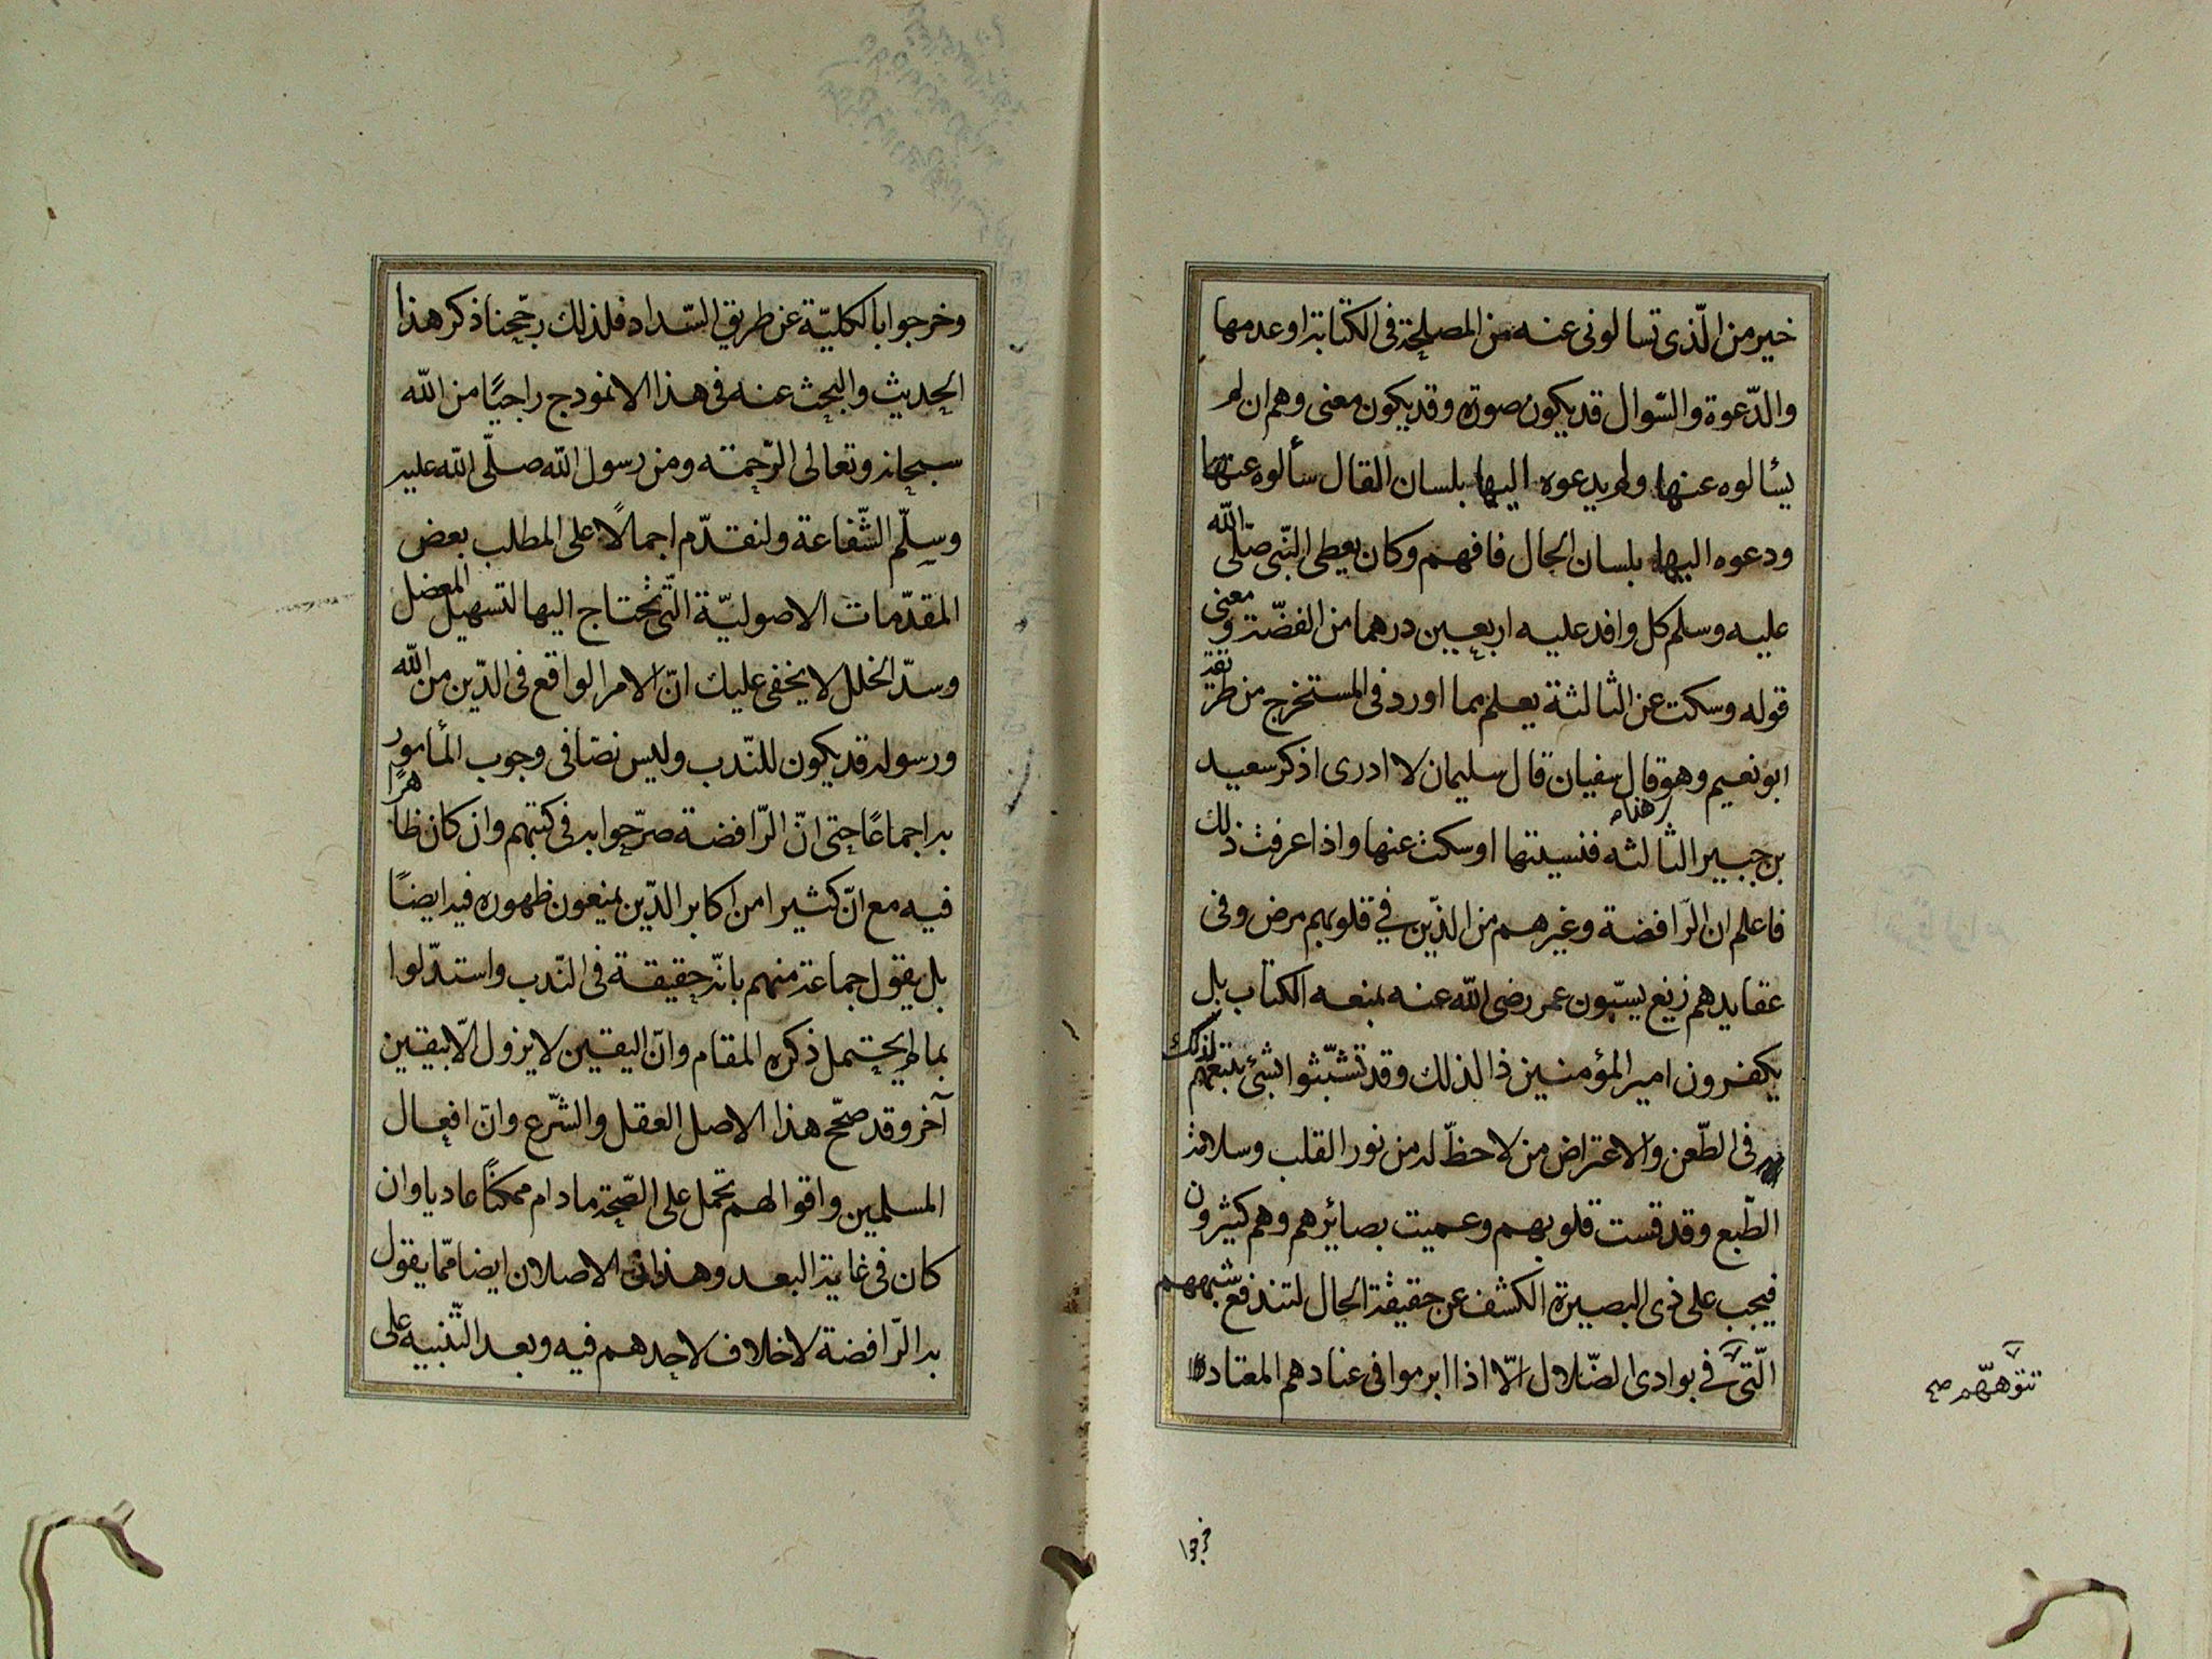 خير من الّذى تسالونى عنه من المصلحة فى الكتابة او عدمها
والدّعوة والسّوال قد يكون صورة وقد يكون معنى وهم ان لم
يسٔالوه عنها ولم يدعوه اليها بلسان القال سألوه عنها
ودعوه اليها بلسان الحال فافهم وكان يعطى النّبى صلّى الله
عليه وسلم كل وافد عليه اربعين درهما من الفضّة ومعنى
قوله وسكت عن الثالثة يعلم بما اورد فى المستخرج من طريقة
ابو نعيم وهو قال سفيان قال سليمان لا ادرى اذكر سعيد
بن جبير الثالثه فنسيتها او سكت عنها واذا عرفت ذلك
فاعلم ان الرّافضة وغيرهم من الذّين في قلوبهم مرض وفى
عقايدهم زيغ يسبّون عمر رضى الله عنه بمنعه الكتاب بل
يكفرون امير المؤمنين ذا لذلك وقد تشبّثوا بشئ يتبعهم لذلك
فى الطّعن والاعتراض من لا حظّ له من نور القلب وسلامة
الطّبع وقد قست قلوبهم وعميت بصائرهم وهم كثيرون
فيجب على ذى البصيرة الكشف عن حقيقة الحال لتندفع شبههم
الّتى في بوادى الضّلال الّا اذا ابرموا فى عنادهم المعتاد
تتوّههّم صح
خرجوا
وخرجوا بالكليّة عن طريق السّداد فلذلك رجّحنا ذكر هذا
الحديث والبحث عنه فى هذا الانموذج راجيًا من الله
سبحانه وتعالى الرّحمة ومن رسول الله صلّى الله عليه
وسلّم الشّفاعة ولنقدّم اجمالًا على المطلب بعض
المقدّمات الاصوليّة الّتى تحتاج اليها لتسهيل المعضل
وسدّ الخلل لا يخفى عليك انّ الامر الواقع فى الدّين من الله
ورسوله قد يكون للنّدب وليس نصّا فى وجوب المأمور
به اجماعًا حتى انّ الرّافضة صرّحوا به فى كتبهم وان كان ظاهرًا
فيه مع انّ كثيرا من اكابر الدّين يمنعون ظهوره فيه ايضًا
بل يقول جماعة منهم بانّه حقيقة فى النّدب واستدّلوا
بما لم يحتمل ذكره المقام وانّ اليقين لا يزول الّا بيقين
آخر وقد صحّح هذا الاصل العقل والشّرع وانّ افعال
المسلمين واقوالهم تحمل على الصّحة ما دام ممكنًا عاديا وان
كان فى غاية البعد وهذان الاصلان ايضا ممّا يقول
به الرّافضة لا خلاف لاحدهم فيه وبعد التّنبيه على